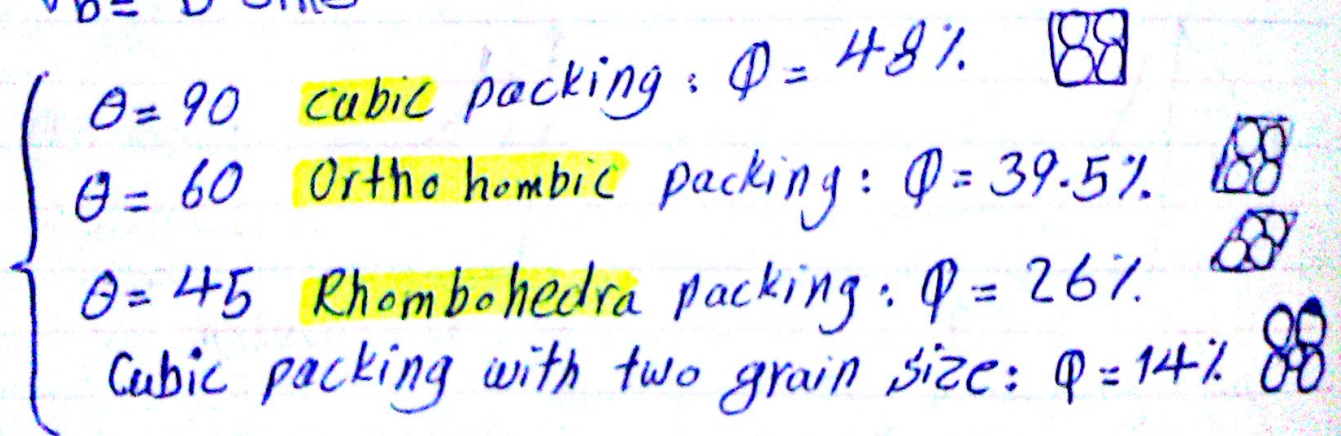 θ = 90 cubic packing : Φ = 48%
θ = 60 Ortho hombic packing : Φ = 39.5%
θ = 45 Rhombohedra packing : Φ = 26%
Cubic packing with two grain size : Φ = 14%